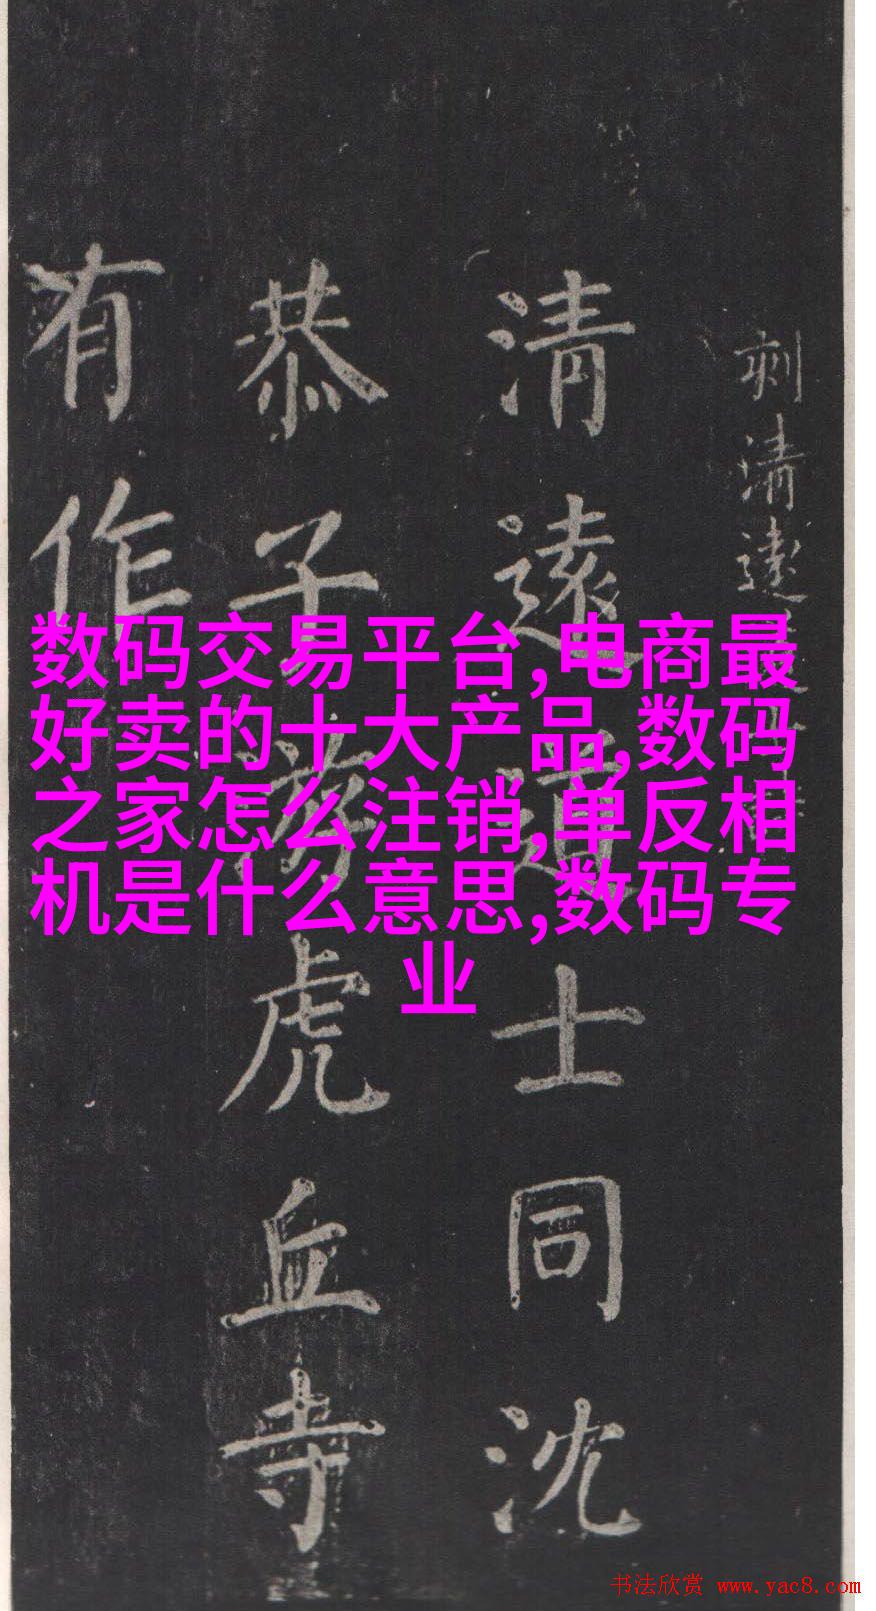 刻清遠道士詩
清遠道士同沈
恭子游虎丘寺
有作
数码交易平台,电商最
好卖的十大产品,数码
之家怎么注销,单反相
机是什么意思,数码专
业
书法欣赏 www.yac8.com